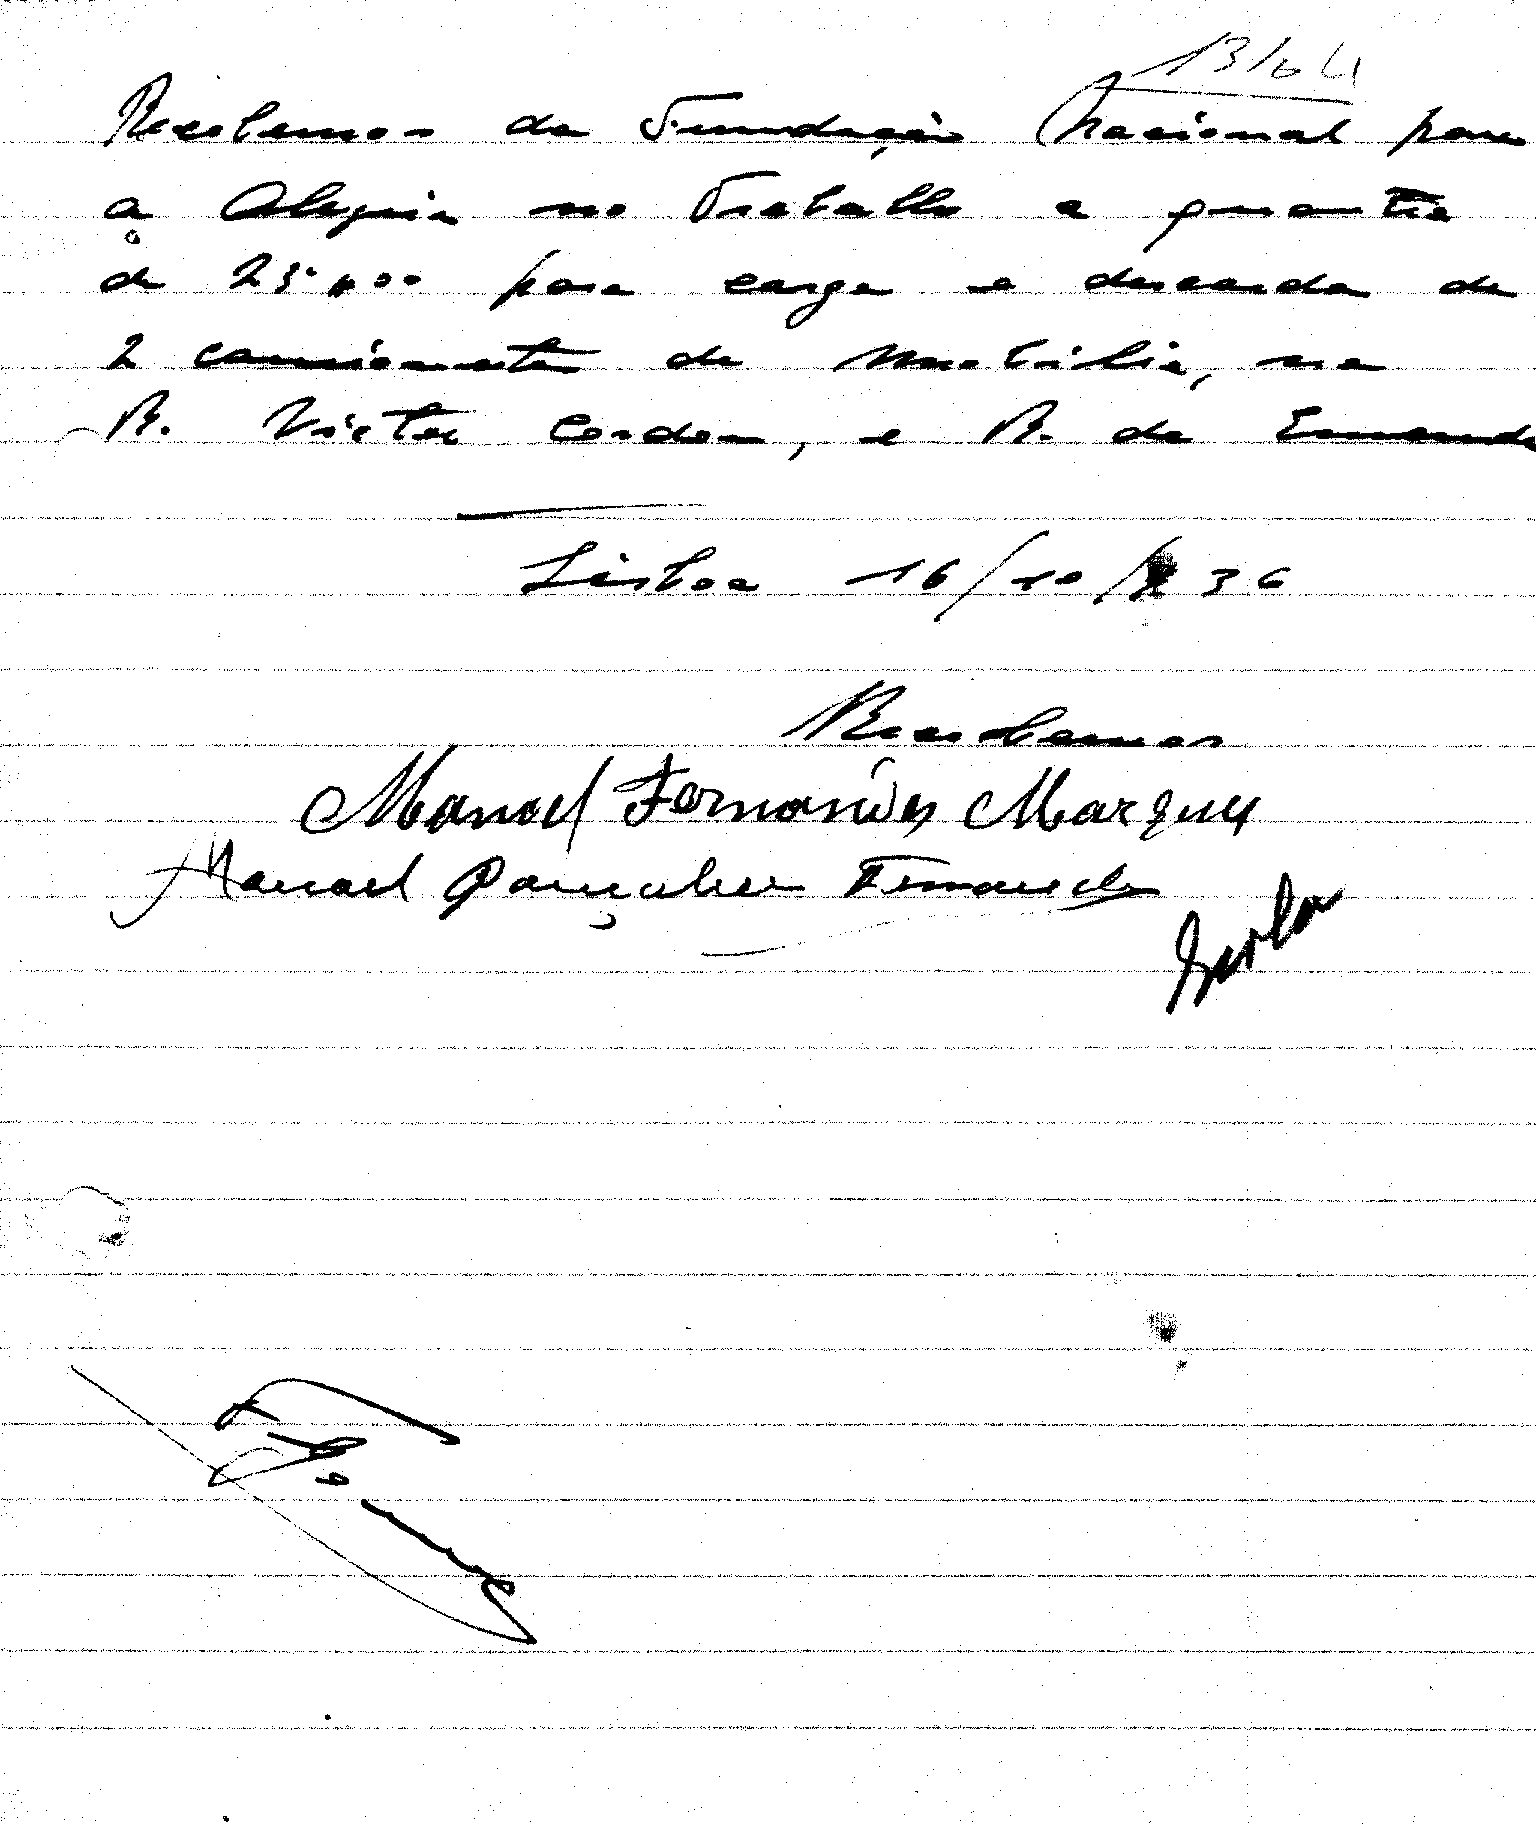 13/64
Recebemos da Fundação Nacional para
a Alegria no Trabalho a quantia
de 25$00 para carga e descarda de
2 camionetes de mobilia, na
R. Victor Cordon, e R. da Emenda
Lisboa 16/10/936
Recebemos
Manoel Fernandes Marques
Manoel Gonçalves Fernandes